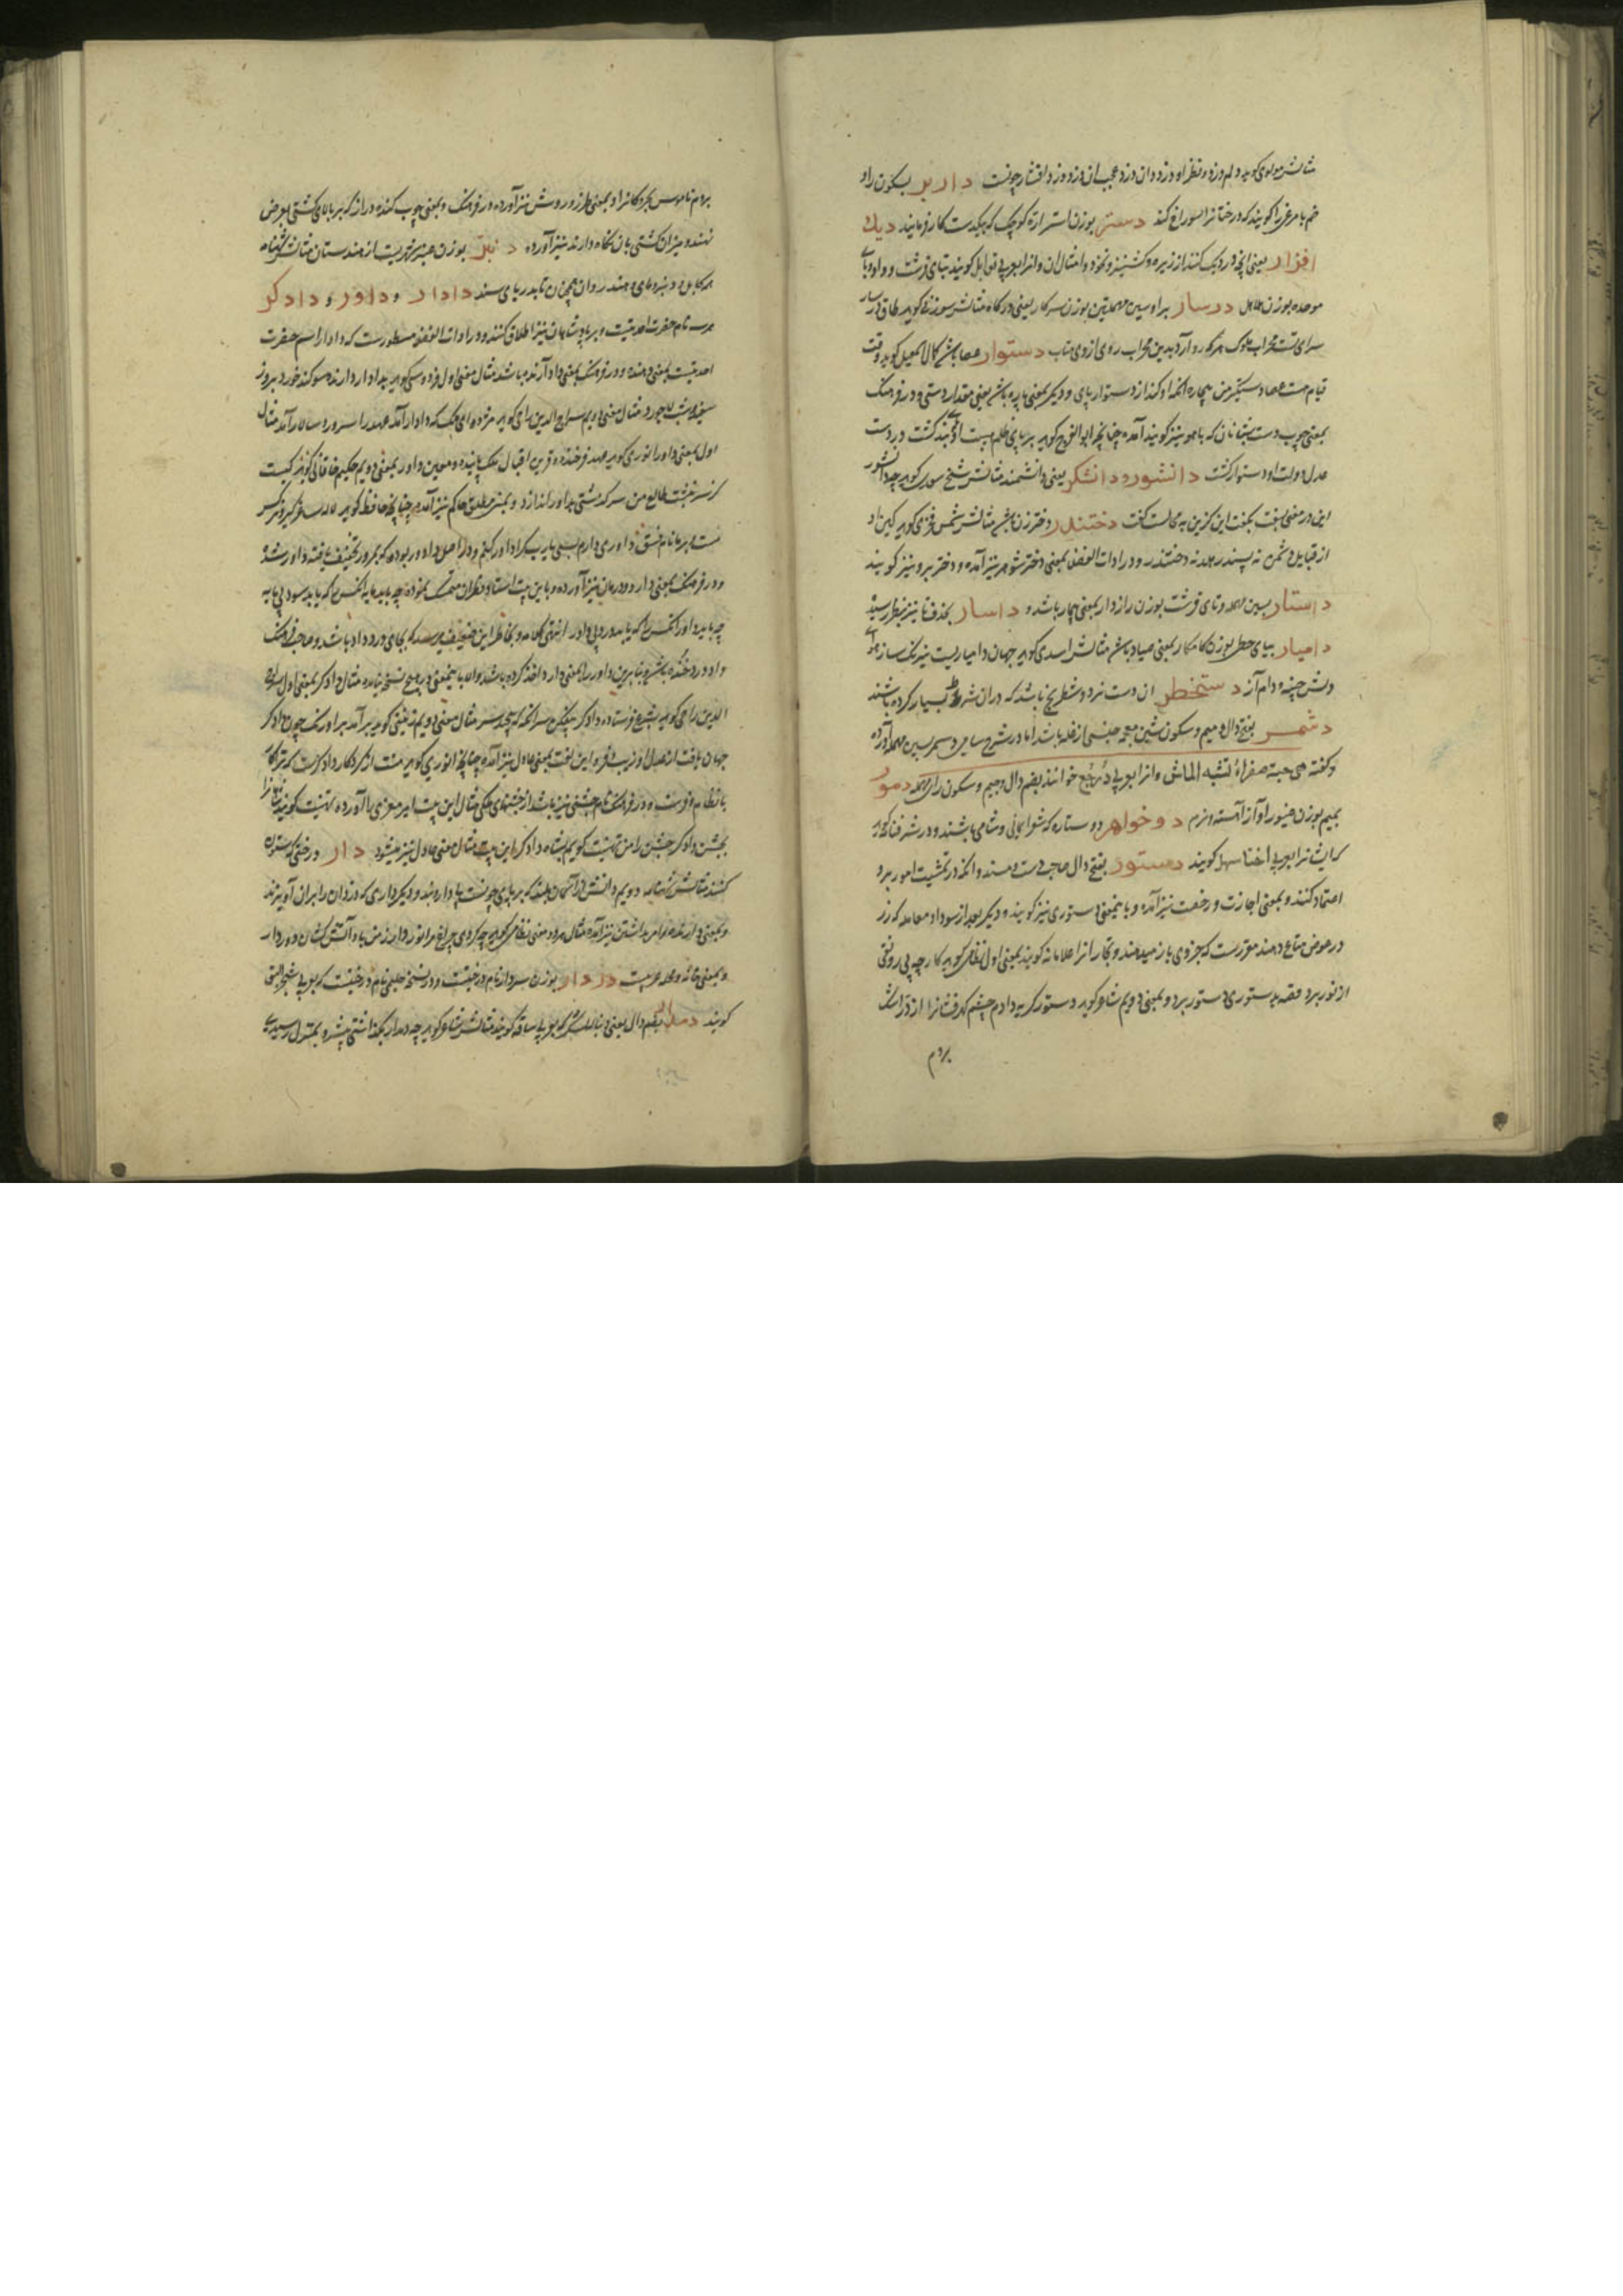 مثالش مولوی گوید و لم دزد و نظر او دزد و ان دزد عجب ان دزد دزد افشار چونست داربر بسکون را و
ضم با مرغی را گویند که درختانرا سوراخ کند دستر بوزن استر ارهٔ کوچک که بیکدست کار فرمایند دیک
افزار یعنی انچه در دیک کنند از زیره و کشنیز و نخود و امثال ان و انرا بعربی توابل گویند بتای قرشت و واو و بای
موحده بوزن درسار برا و سین مهملتین بوزن سرکار یعنی درگاه مثالش سوزنی گوید طاق درسار
سرای تست محراب ملوک هرکه رو آرد بدین محراب روی ازوی متاب دستوار عصا باشد کمال اسمعیل گوید وقت
قیام هست عصا دستگیر من بیچاره انکه او کند از دستوار پای و دیگر بمعنی یاره باشد یعنی مقدار دستی و در فرهنگ
بمعنی چوب دست شبانان که باهو نیز گویند آمده چنانچه ابو الفرج گوید بر پای ظلم هیبت او بند گشت در دست
عدل دولت او دستوار گشت دانشور و دانشگر یعنی دانشمند مثالش شیخ سعدی گوید چو دانشور
این در معنی بسفت بگفت این کزین به محالست گفت دختندر دختر زن باشد مثالش شمس فخری گوید
از قبایل دشمن نه پسندر بماند نه دختندر و در ادات الفضلا بمعنی دختر شوهر نیز آمده و دختر برو نیز گویند
داستار بسین مهمله و تای قرشت بوزن رازدار بمعنی باشد و داسار بحذف تا نیز بنظر رسیده
دامیار بیای حطی بوزن کامکار بمعنی صیاد باشد مثالش اسدی گوید جهان دامیاریست نیرنگ ساز هوای
دلش چینه و دام آز دستخطر ان دست نرد و شطرنج باشد که در ان شرط بسیار کرده باشند
دشمر بفتح دال و میم و سکون شین معجمه جنسی از غله باشد اما در شرح سامی دسمر بسین مهمله آورده
و گفته هی حبة صفراء تشبه الماش و انرا بعربی دجر خوانند بضم دال و جیم و سکون رای مهمله دمور
بمیم بوزن صبور آواز آهسته و نرم دو خواهر دو ستاره که شعرای یمانی و شامی باشند و در شرفنامه گوید
که ایشانرا بعربی اختا سهیل گویند دستور بفتح دال صاحب دست و مسند و انکه در تمشیت امور برو
اعتماد کنند و بمعنی اجازت و رخصت نیز آمده و باینمعنی دستوری نیز گویند و دیگر بعد از سودا و معامله که زر
در عوض متاع دهند مقررست که جزوی باز میدهند و تجار انرا علامانه گویند بمعنی اول نظامی گوید کار چو بی رونقی
از نور برد قصه بدستوری دستور برد و بمعنی دویم شاعر گوید دستور گریه دادم چشم گهرفشانرا
بردم
بردم ناموس بحر و کانرا و بمعنی طرز و روش نیز آورده در فرهنگ و بمعنی چوب گنده دراز که بر بالای کشتی بعرض
نهند و میزان کشتی بان نگاه دارند نیز آورده دنبر بوزن عنبر شهریست از هندوستان مثالش شهنامه
همه کابل و دنبر و مای و هند روان همچنین تا بدریای سند دادار و داور و دادگر
هر سه نام حضرت احدیتست و بر پادشاهان نیز اطلاق کنند و در ادات الفضلا مسطورست که دادار اسم حضرت
احدیتست بمعنی دهنده و در فرهنگ بمعنی داد آرنده باشد مثال معنی اول فردوسی گوید بدادار دارنده سوگند خورد بروز
سفید و شب لاجورد مثال معنی دویم سراج الدین راجی گوید مژده ای ملک که دادار آمد عهد را سرور و سالار آمد مثال
اول بمعنی داور انوری گوید عهد فرخنده و قرین اقبال ملک پاینده و معین داور بمعنی دویم حکیم خاقانی گوید کیست
کز سرنوشت طالع من سرگذشتی بداور اندازد و بمعنی مطلق حاکم نیز آمده چنانچه حافظ گوید لاله ساغر گیر و نرگس
مست و بر ما نام فسق داوری دارم بسی یارب کرا داور کنم و در اصل دادور بوده که بمرور تخفیف یافته داور شد
و در فرهنگ بمعنی دارو و درمان نیز آورده و باین بیت استاد متمسک نموده چه باید مایه انکس را که یابد سود بی مایه
چه باید داور انکس را که یابد درد بی داور انتهی کلامه و بخاطر این ضعیف میرسد که بجای درد داد باشد و صاحب فرهنگ
داد درد خوانده باشد و بنابرین داور را بمعنی دارو اخذ کرده باشد والا باینمعنی در هیچ نسخه نیامده مثال دادگر بمعنی اول سراج
الدین راجی گوید بشرع فرستاده دادگر که پیچد سر مثال معنی دویم گوید برآمد بر اورنگ چون دادگر
جهان یافت از عدل او زیب و فر و این لغت بمعنی عادل نیز آمده چنانچه انوری گوید منت از کردگار دادگرست که ترا کار
با نظام و فرست و در فرهنگ نام جشنی نیز باشد از جشنهای ملکی مثال این بیت امیر معزی را آورده تهنیت گویند شاهانرا
بجشن دادگر جشن را من تهنیت گویم بشاه دادگر این بیت مثال معنی عادل نیز میشود دار درختی که ستون
کنند مثالش دویم دانش و آسمان بلند که بر پای چونست بی دار و بند و دیگر داری که دزدان را بران آویزند
و بمعنی دارنده و امر بداشتن نیز آمده مثال هردو معنی نظامی گوید چه کردی چراغ مرا نور دار ز من باد آتش کشان دور دار
و بمعنی خانه و محله عربیست دردار بوزن سردار نام درختیست و در نسخه حلیمی نام درختیست که بعربی شجر البق
گویند دمدار بضم دال یعنی دنباله لشکر که بعربی ساقه گویند مثالش شاعر گوید چو دمدار بگذاشتی پیشرو بمنزل رسیدی